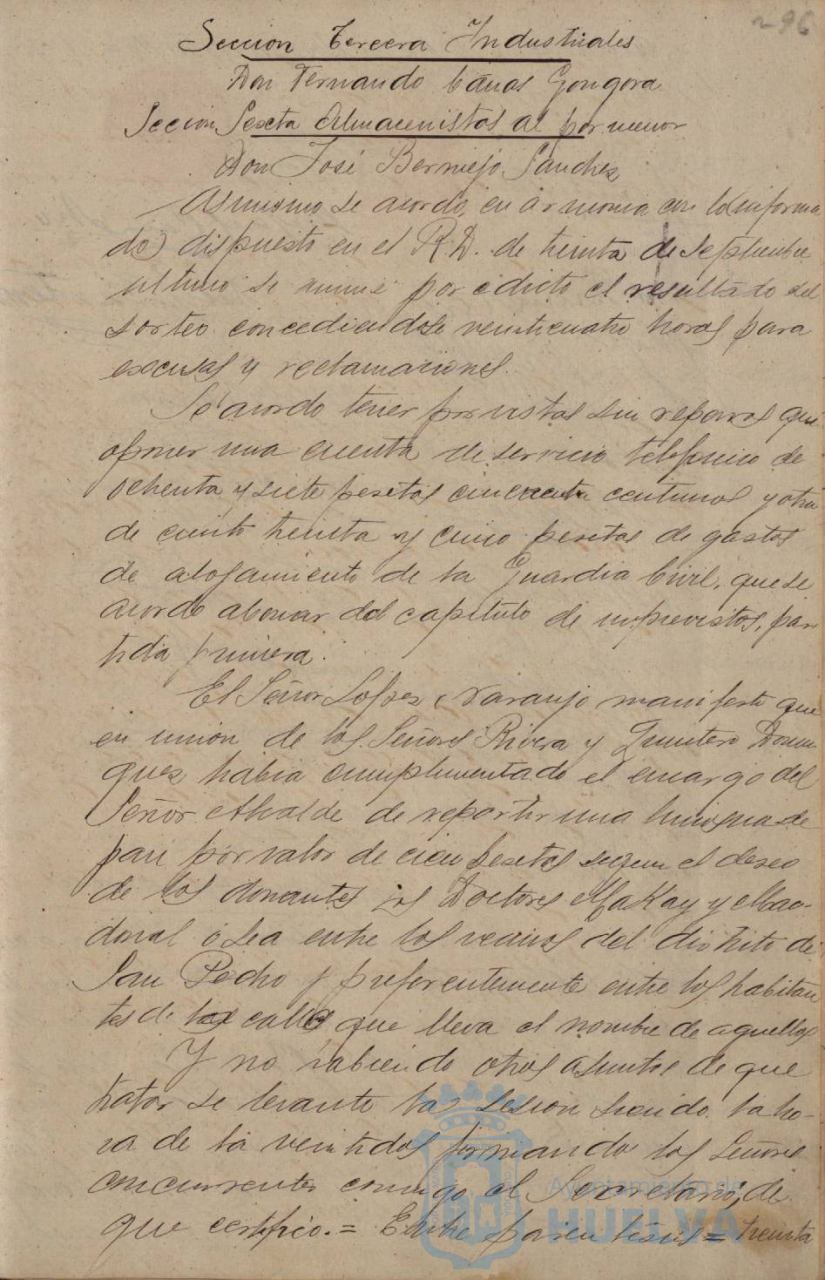 296
Seccion Tercera Industriales
Don Fernando Cános Gongora
Seccion Sexta Almacenistas al por menor
Don José Bermejo Sanchez
Asimismo se acordo, en armonia con lo (informa
do) dispuesto en el R.D. de treinta de Septiembre
ultimo se anuncie por edicto el resultado del
sorteo concediendose veinticuatro horas para
excusas y reclamaciones.
Se acordo tener por vistas sin reparos que
oponer una cuenta de servicio telefonico de
ochenta y siete pesetas cincuenta centimos y otra
de ciento treinta y cinco pesetas de gastos
de alojamiento de la Guardia Civil, que se
acordo abonar del capitulo de imprevistos, par
tida primera.
El Señor Lopez Naranjo manifesto que
en union de los Señores Rivera y Quintero Domin
guez habia cumplimentado el encargo del
Señor Alcalde de repartir una limosna de
pan por valor de cien pesetas segun el deseo
de los donantes los Doctores MaKay y Mac-
donal ó sea entre los vecinos del distrito de
San Pedro y preferentemente entre los habitan
tes de la calle que lleva el nombre de aquellos
Y no habiendo otros asuntos de que
tratar se levanto la sesion siendo la ho-
ra de la veintidos firmando los Señores
concurrentes conmigo el Secretario, de
que certifico. = Entre parentesis = treinta
Ayuntamiento de
HUELVA